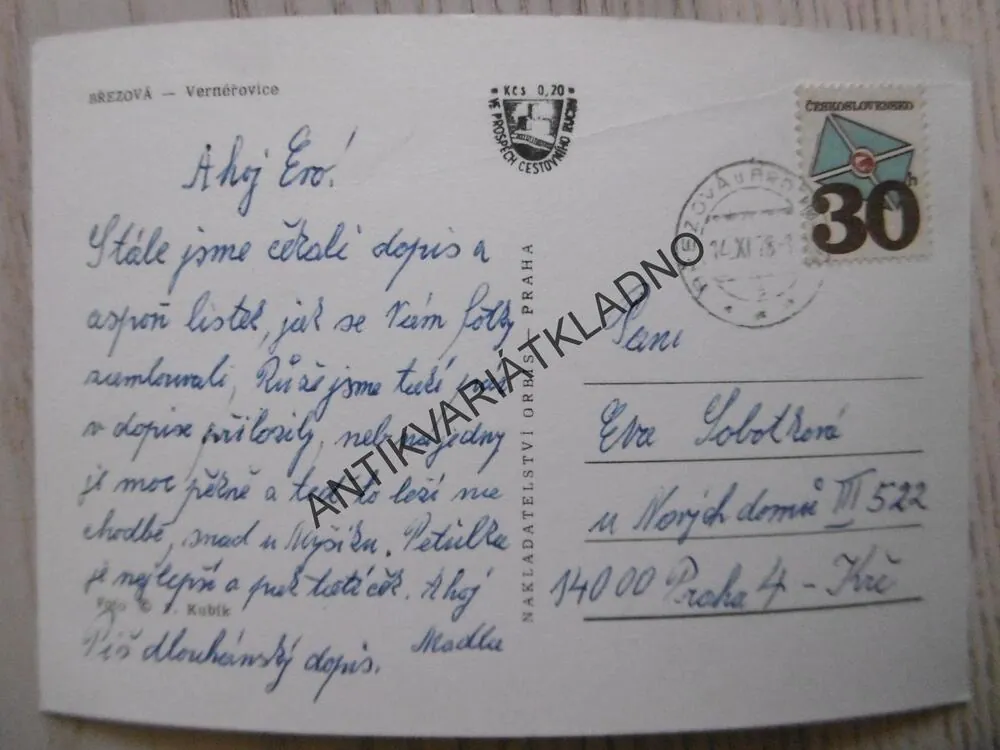 BŘEZOVÁ — Vernéřovice
Kčs 0,20
VE PROSPĚCH CESTOVNÍHO RUCHU
ČESKOSLOVENSKO
30h
BŘEZOVÁ U BRO
14.XI
Ahoj Evo!
Stále jsme čekali dopis a
aspoň lístek, jak se Vám fotky
zamlouvali, Růže jsme také
v dopise přiložily, nebo na jedny
je moc pěkně a teď to leží na
chodbě, snad u Myšíku. Petulka
je nejlepší a pak tatíček. Ahoj
Foto © J. Kubík
Madla
Piš dlouhánský dopis.
NAKLADATELSTVÍ ORBIS — PRAHA
Paní
Eva Sobotková
u Nových domů III 522
14000 Praha 4 - Krč
ANTIKVARIÁTKLADNO